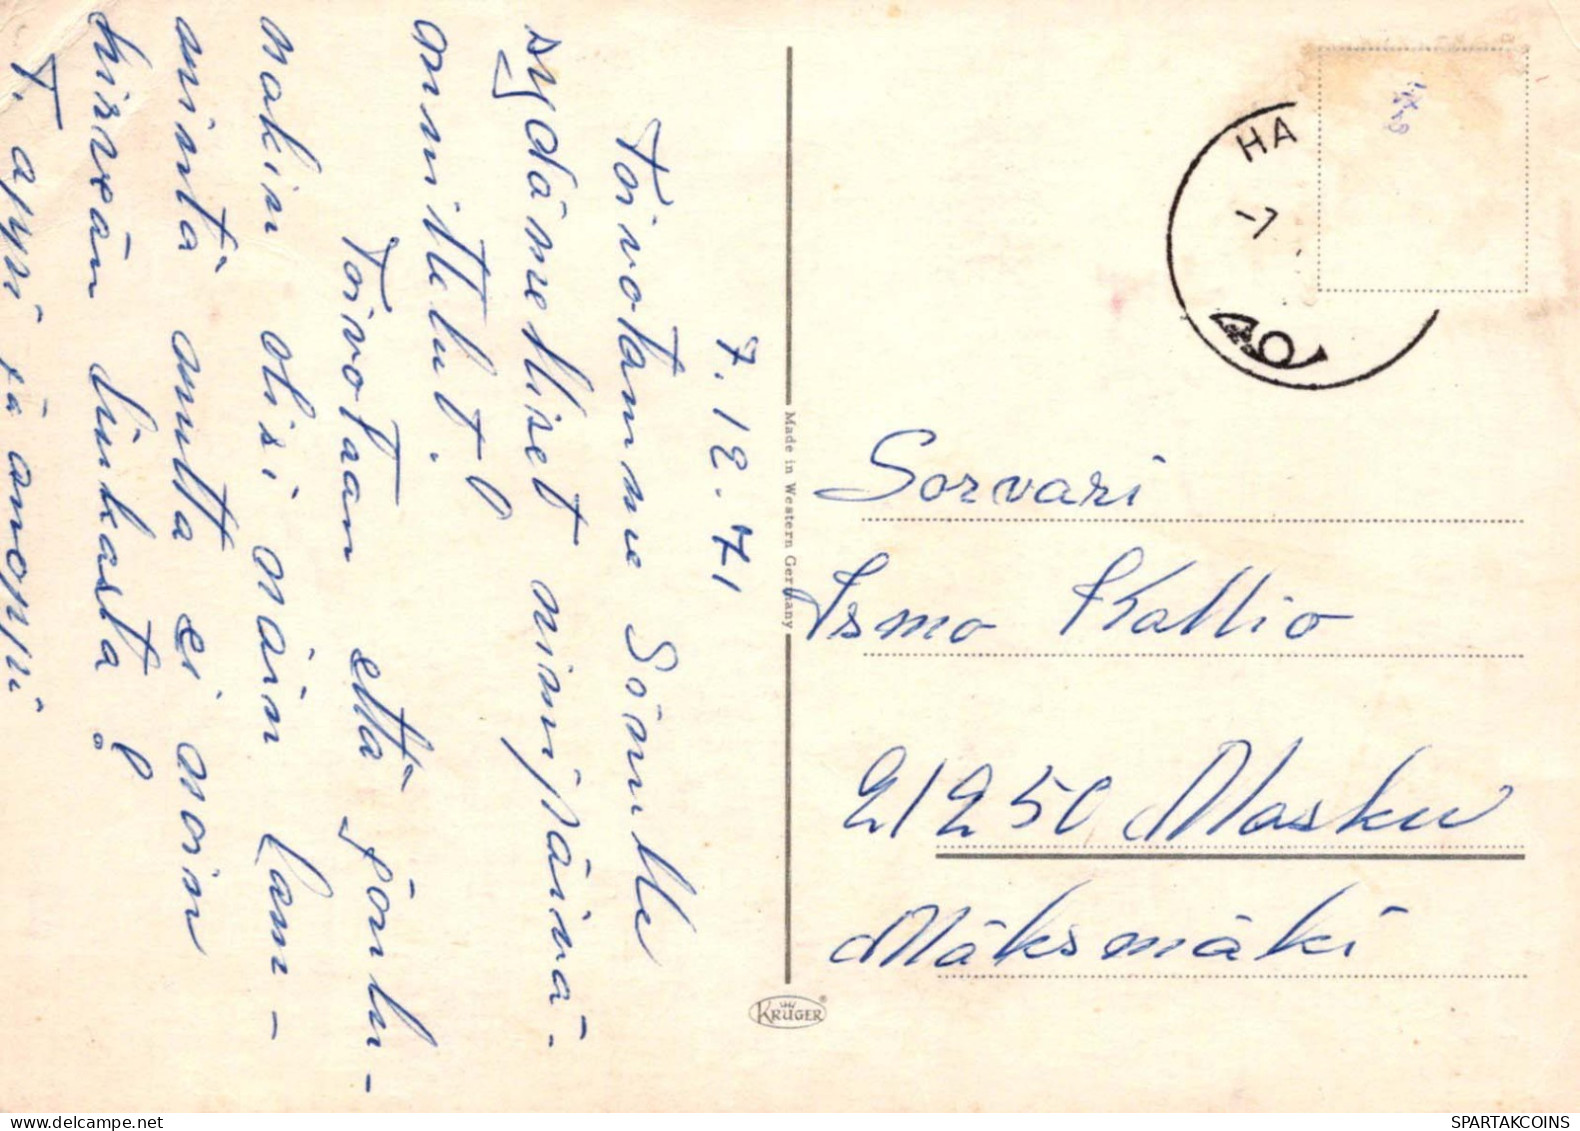 7.12.71
Toivotamme Sinulle
sydämelliset nimipäivä-
onnittelut!
Toivotaan että joulu-
nakin olisi näin läm-
mintä mutta ei noin
hirveän liukasta!
T. appi ja anoppi
Made in Western Germany
KRÜGER
HA
-7
Sorvari
Ismo Kallio
21250 Masku
Mäksmäki
delcampe.net
SPARTAKCOINS